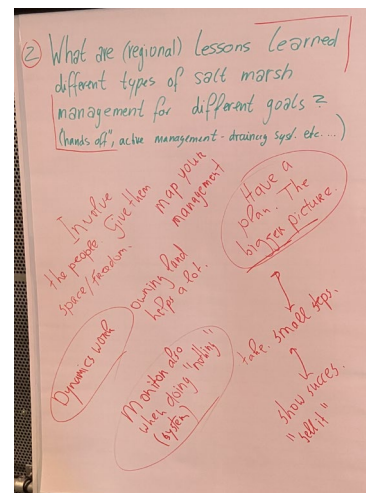 2 What are (regional) lessons learned
different types of salt marsh
management for different goals?
("hands off", active management - draining syst. etc....)
Involve
the people. Give them
space/freedom.
map your
management
Have a
plan. The
bigger picture.
owning land
helps a lot.
Dynamics work
Monitor also
when doing "nothing"
(system)
take small steps.
show succes.
"sell it"